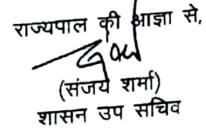 राज्यपाल की आज्ञा से,
(संजय शर्मा)
शासन उप सचिव